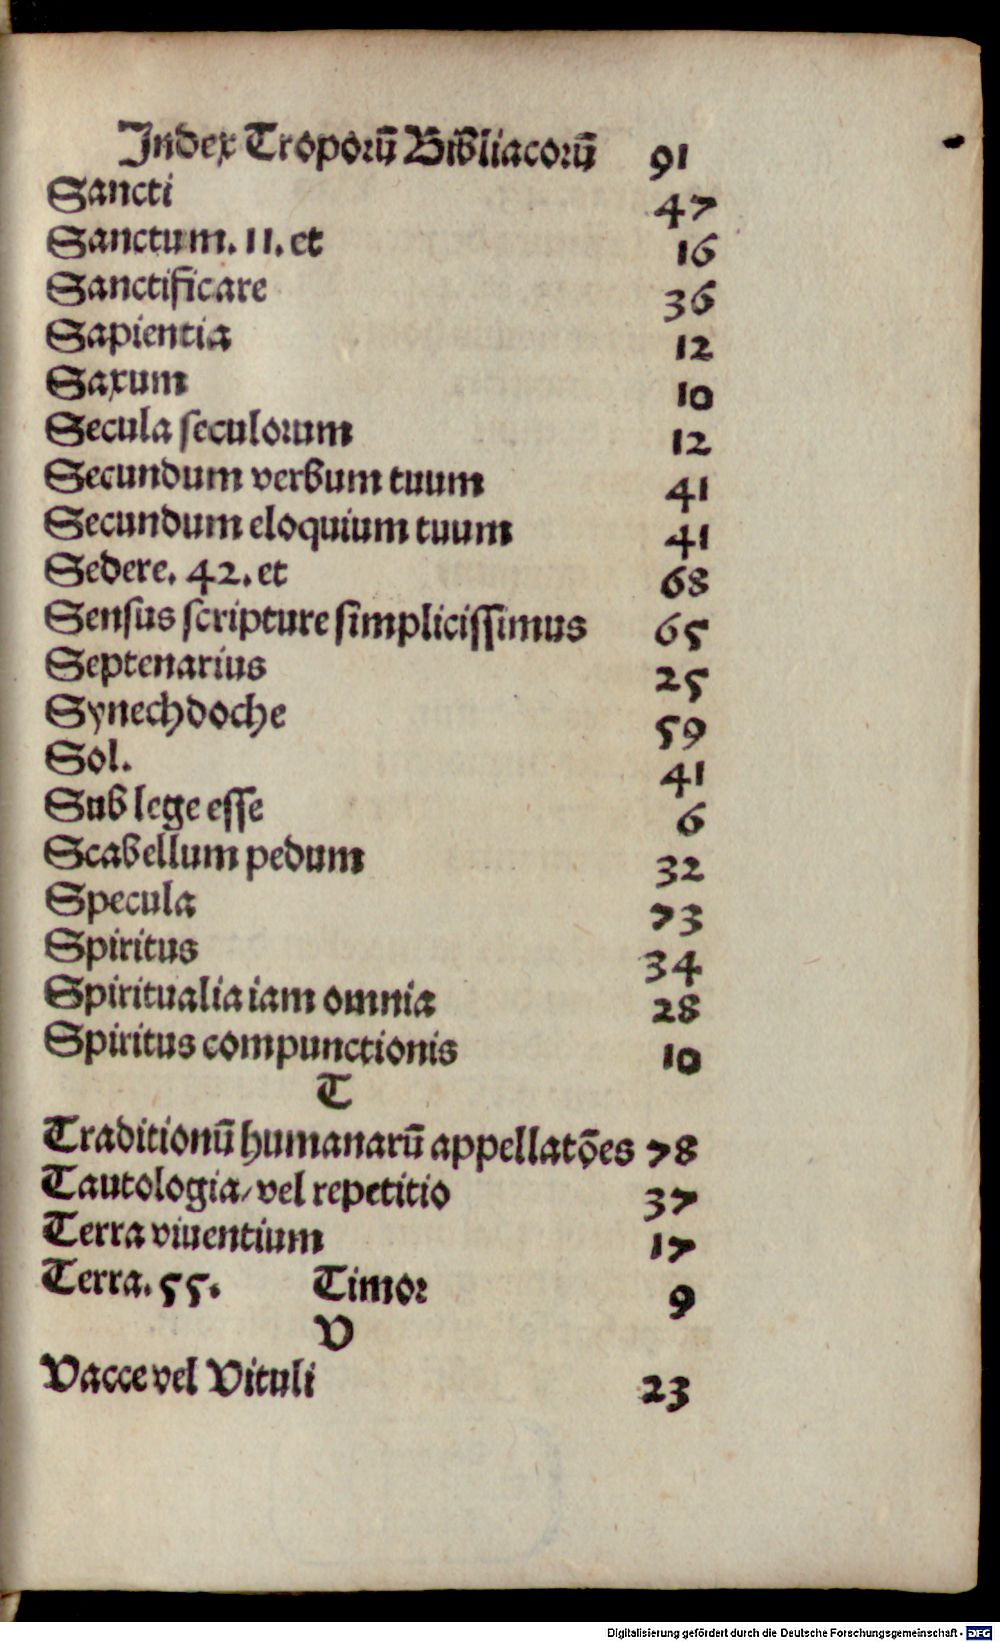 Index Troporū Bibliacorū 91
Sancti 47
Sanctum. 11. et 16
Sanctificare 36
Sapientia 12
Saxum 10
Secula seculorum 12
Secundum verbum tuum 41
Secundum eloquium tuum 41
Sedere. 42. et 68
Sensus scripture simplicissimus 65
Septenarius 25
Synechdoche 59
Sol. 41
Sub lege esse 6
Scabellum pedum 32
Specula 73
Spiritus 34
Spiritualia iam omnia 28
Spiritus compunctionis 10
T
Traditionū humanarū appellatōes 78
Tautologia/ vel repetitio 37
Terra viuentium 17
Terra. 55. Timor 9
V
Vacce vel Vituli 23
Digitalisierung gefördert durch die Deutsche Forschungsgemeinschaft - DFG